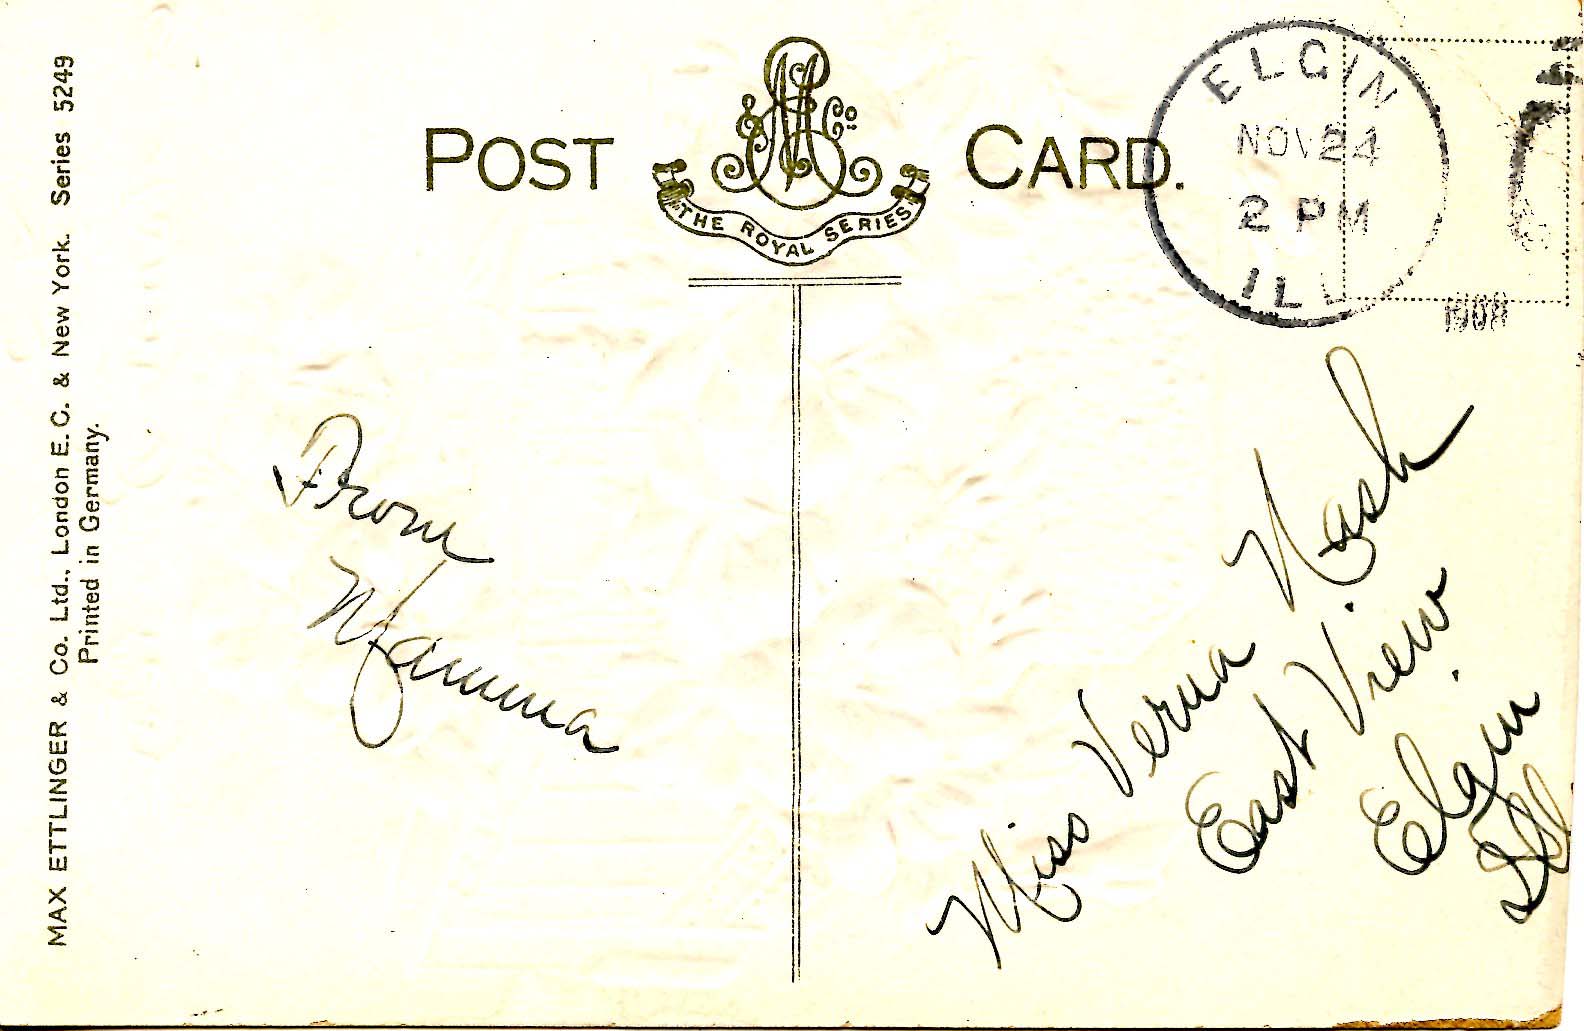 MAX ETTLINGER & Co. Ltd., London E.C. & New York. Series 5249
Printed in Germany.
POST CARD.
& Co
THE ROYAL SERIES
ELGIN
NOV 24
2 PM
ILL
1908
From
Mamma
Miss Verna Nash
East View
Elgin
Ill